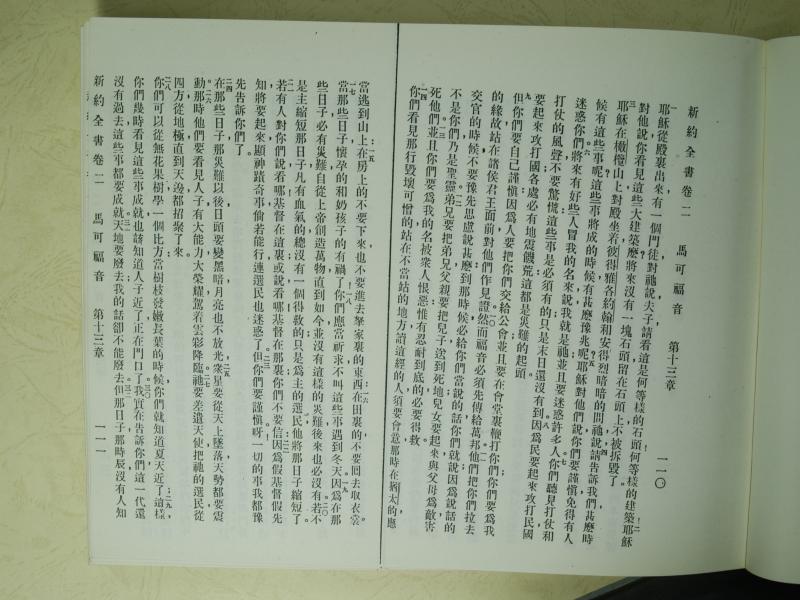 新約全書卷二　馬可福音　第十三章　一一〇
耶穌從殿裏出來有一個門徒對祂說夫子請看這是何等樣的石頭何等樣的建築耶穌
對他說你看見這些大建築麼將來沒有一塊石頭留在石頭上不被拆毀了
耶穌在橄欖山上對殿坐着彼得雅各約翰和安得烈暗暗的問祂說請告訴我們甚麼時
候有這些事呢這些事將成的時候有甚麼豫兆呢耶穌對他們說你們要謹慎免得有人
迷惑你們將來有好些人冒我的名來說我就是祂並且要迷惑許多人你們聽見打仗和
打仗的風聲不要驚慌這些事是必須有的只是末日還沒有到因爲民要起來攻打民國
要起來攻打國各處必有地震饑荒這都是災難的起頭
但你們要自己謹愼因爲人要把你們交給公會並且要在會堂裏鞭打你們你們要爲我
的緣故站在諸侯君王面前對他們作見證然而福音必須先傳給萬邦他們把你們拉去
交官的時候不要豫先思慮說甚麼到那時候必給你們當說的話你們就說因爲說話的
不是你們乃是聖靈弟兄要把弟兄父親要把兒子送到死地兒女要起來與父母爲敵害
死他們並且你們要爲我的名被衆人恨惡惟有忍耐到底的必要得救
你們看見那行毀壞可憎的站在不當站的地方讀這經的人須要會意那時在猶太的應
當逃到山上在房上的不要下來也不要進去拏家裏的東西在田裏的不要回去取衣裳
當那些日子懷孕的和奶孩子的有禍了你們應當祈求不叫這些事遇到冬天因爲在那
些日子必有災難自從上帝創造萬物直到如今並沒有這樣的災難後來也必沒有若不
是主縮短那日子凡有血氣的總沒有一個得救的只是爲主的選民他將那日子縮短了
若有人對你們說看哪基督在這裏或說看哪基督在那裏你們不要信因爲假基督假先
知將要起來顯神蹟奇事倘若能行連選民也迷惑了但你們要謹愼呀一切的事我都豫
先告訴你們了
在那些日子那災難以後日頭要變黑暗月亮也不放光衆星要從天上墜落天勢都要震
動那時他們要看見人子有大能力大榮耀駕着雲彩降臨祂要差遣天使把祂的選民從
四方從地極直到天邊都招聚了來
你們可以從無花果樹學一個比方當樹枝發嫩長葉的時候你們就知道夏天近了這樣
你們幾時看見這些事成就也該知道人子近了正在門口了我實在告訴你們這一代還
沒有過去這些事都要成就天地要廢去我的話卻不能廢去但那日子那時辰沒有人知
新約全書卷二　馬可福音　第十三章　一一一